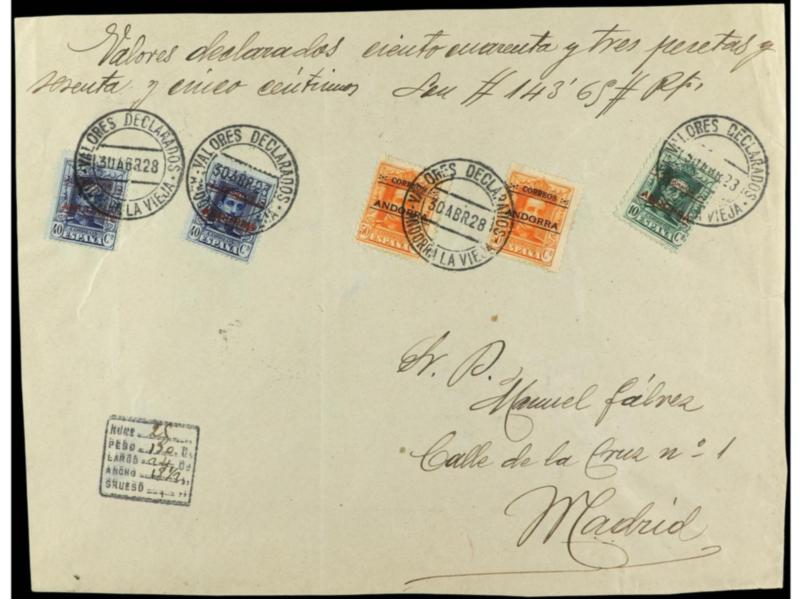 Valores declarados ciento cuarenta y tres pesetas y
sesenta y cinco céntimos Son # 143'65 # Pts.
·VALORES DECLARADOS·
30 ABR 28
LA VIEJA
40 ESPAÑA Cs
·VALORES DECLARADOS·
30 ABR 28
40 ESPAÑA Cs
CORREOS
ANDORRA
ESPAÑA Cs
·VALORES DECLARADOS·
30 ABR 28
ANDORRA LA VIEJA
CORREOS
ANDORRA
ESPAÑA Cs
VALORES DECLARADOS
ABR 28
LA VIEJA
10 ESPAÑA Cs
Sr. D.
Manuel Gálvez
Calle de la Cruz nº 1
Madrid
NUM. 25
PESO 130 G.
LARGO 24
ANCHO
GRUESO